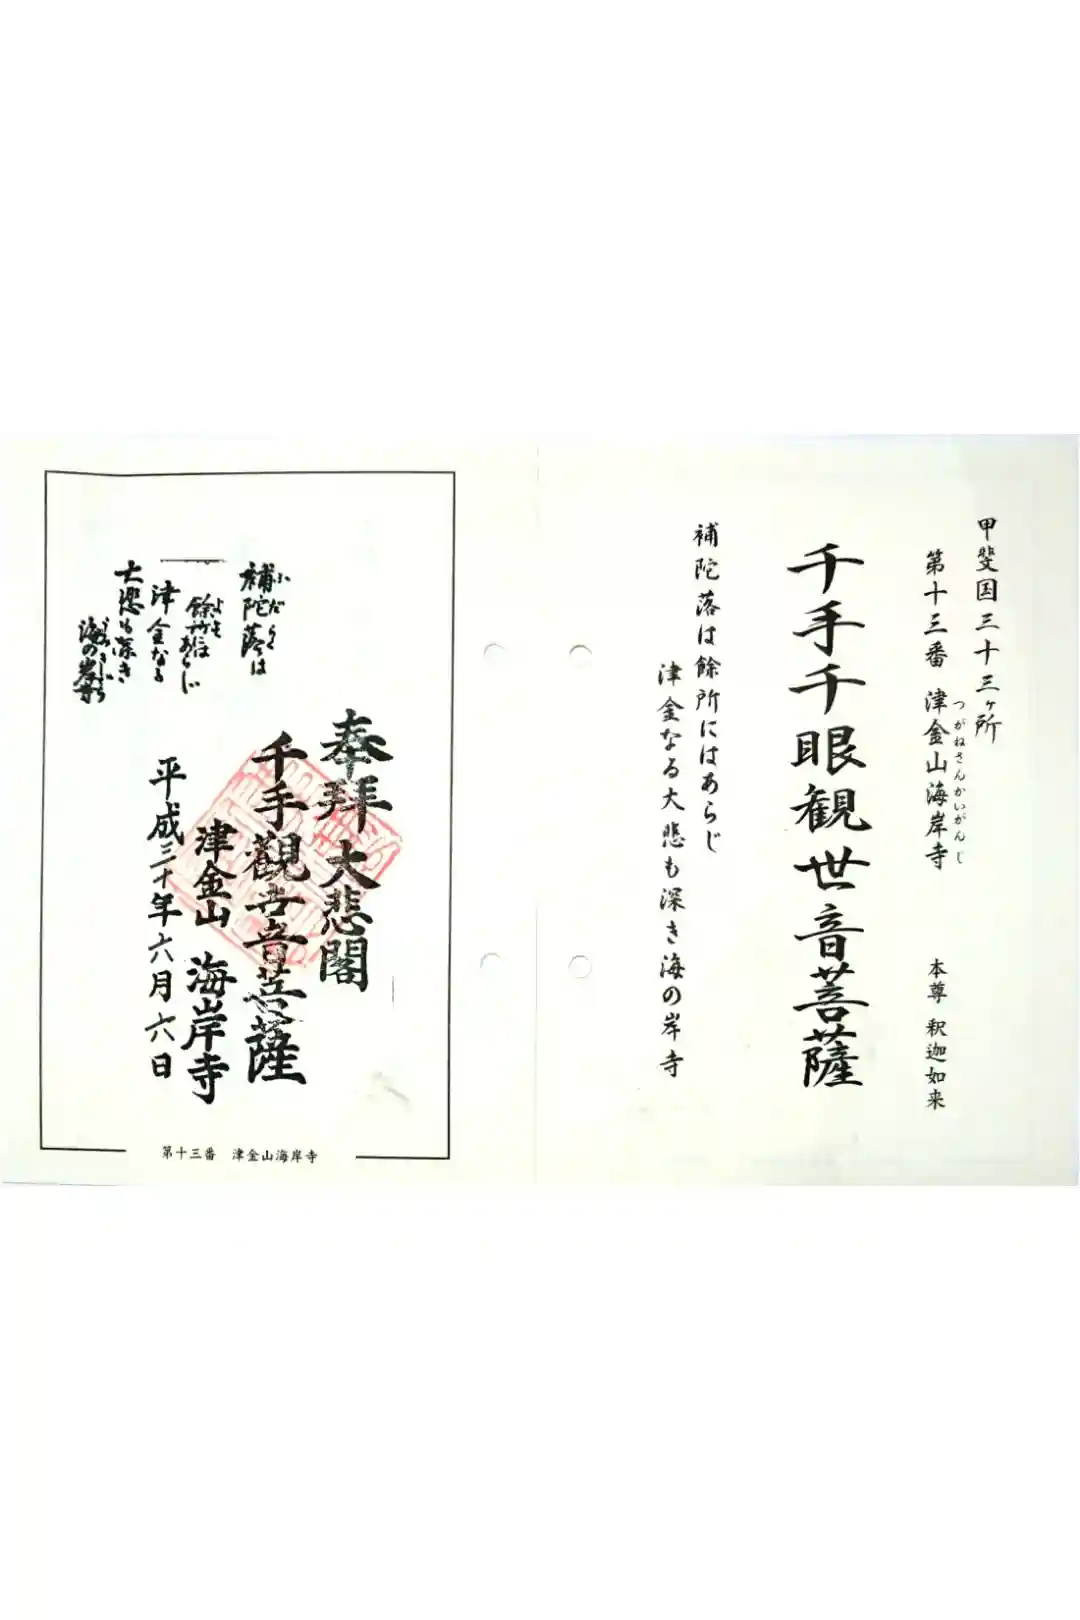 甲斐国三十三ヶ所
第十三番 津金山海岸寺 本尊 釈迦如来
つがねさんかいがんじ
千手千眼観世音菩薩
補陀落は餘所にはあらじ
津金なる大悲も深き海の岸寺
補陀落は
ふだらく
餘所にはあらじ
よそ
津金なる
大悲も深き
海の岸寺
奉拝 大悲閣
千手觀世音菩薩
津金山 海岸寺
平成三十年六月六日
第十三番 津金山海岸寺